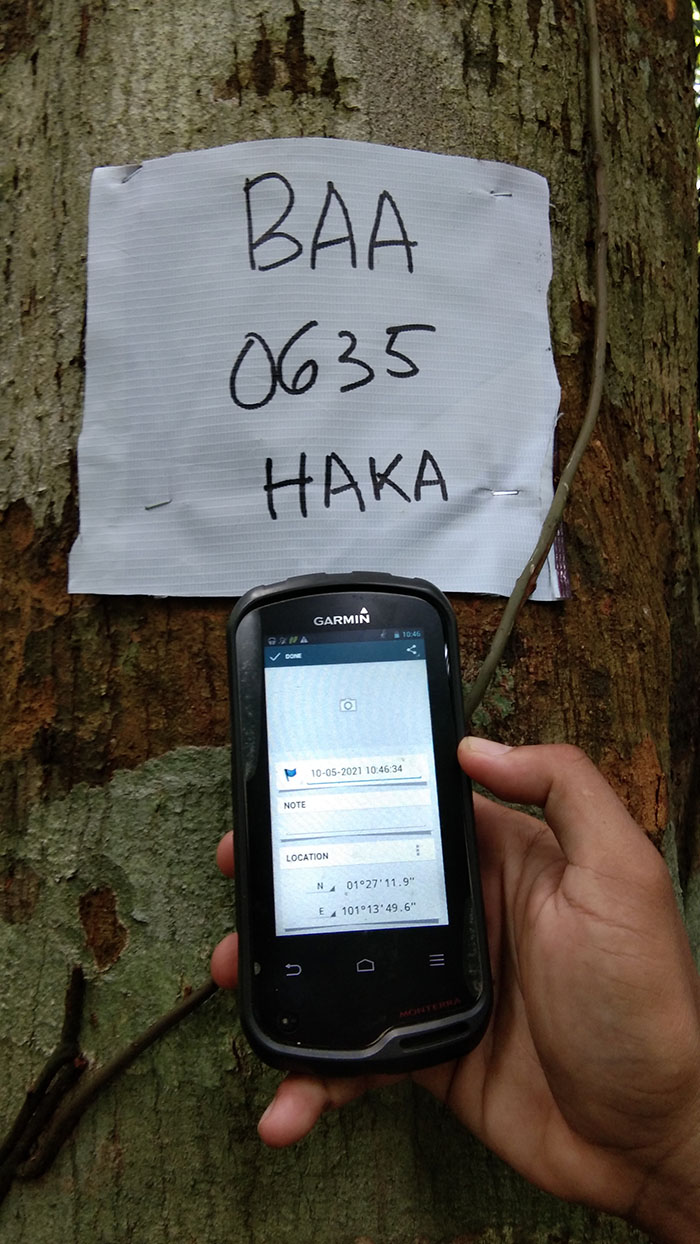 BAA
0635
HAKA
GARMIN
10:46
DONE
10-05-2021 10:46:34
NOTE
LOCATION
N 01°27'11.9"
E 101°13'49.6"
MONTERRA